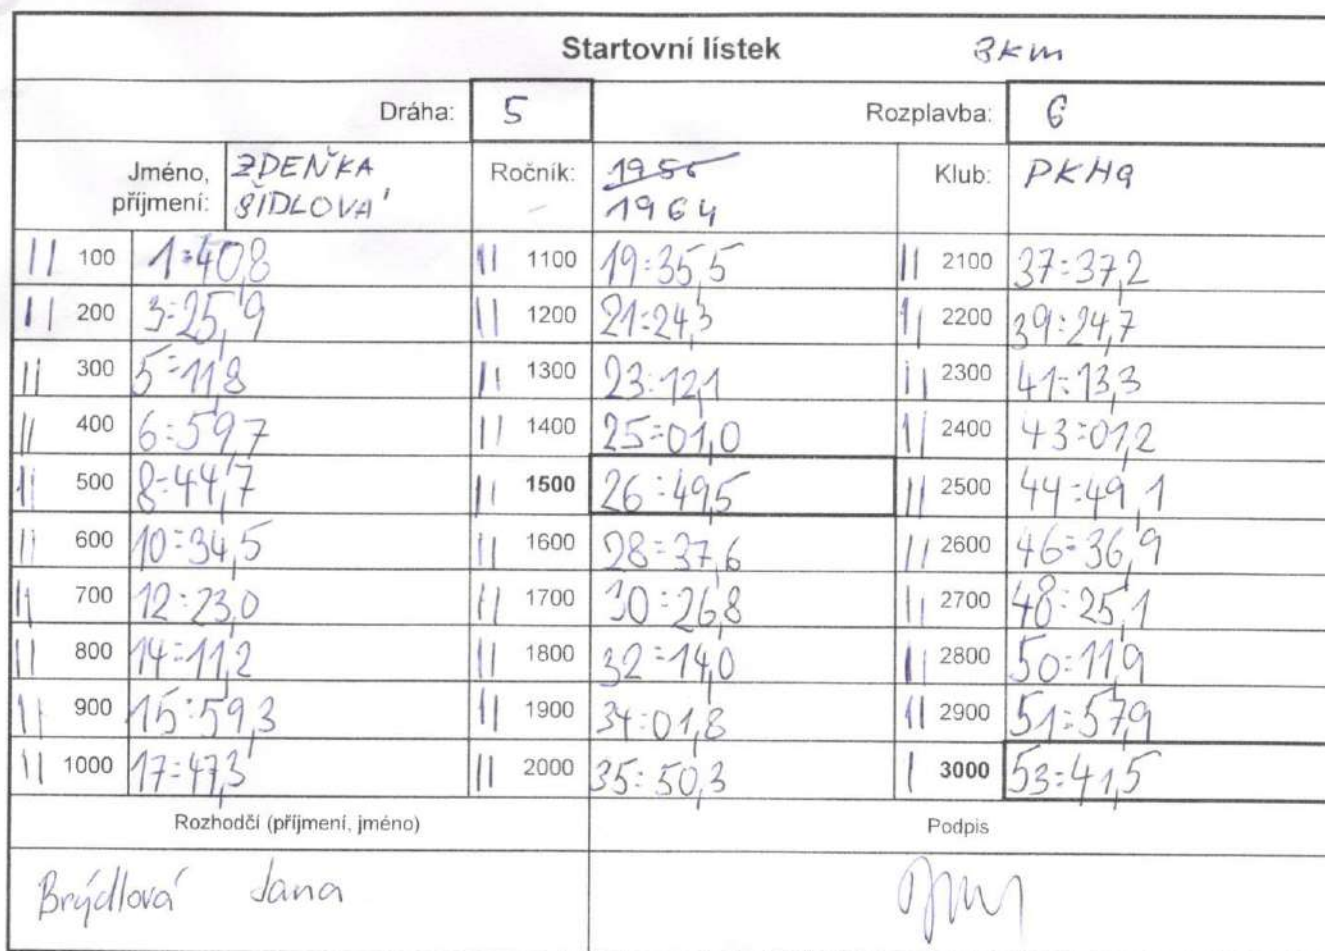 Startovní lístek 3km
Dráha: 5 Rozplavba: 6
Jméno, příjmení: ZDEŇKA ŠÍDLOVÁ Ročník: 1955 1964 Klub: PKHq
|| 100 1:40,8 || 1100 19:35,5 || 2100 37:37,2
|| 200 3:25,9 || 1200 21:24,3 || 2200 39:24,7
|| 300 5:11,8 || 1300 23:12,1 || 2300 41:13,3
|| 400 6:59,7 || 1400 25:01,0 || 2400 43:01,2
|| 500 8:44,7 || 1500 26:49,5 || 2500 44:49,1
|| 600 10:34,5 || 1600 28:37,6 || 2600 46:36,9
|| 700 12:23,0 || 1700 30:26,8 || 2700 48:25,1
|| 800 14:11,2 || 1800 32:14,0 || 2800 50:11,9
|| 900 15:59,3 || 1900 34:01,8 || 2900 51:57,9
|| 1000 17:47,3 || 2000 35:50,3 | 3000 53:41,5
Rozhodčí (příjmení, jméno) Podpis
Brýdlová Jana